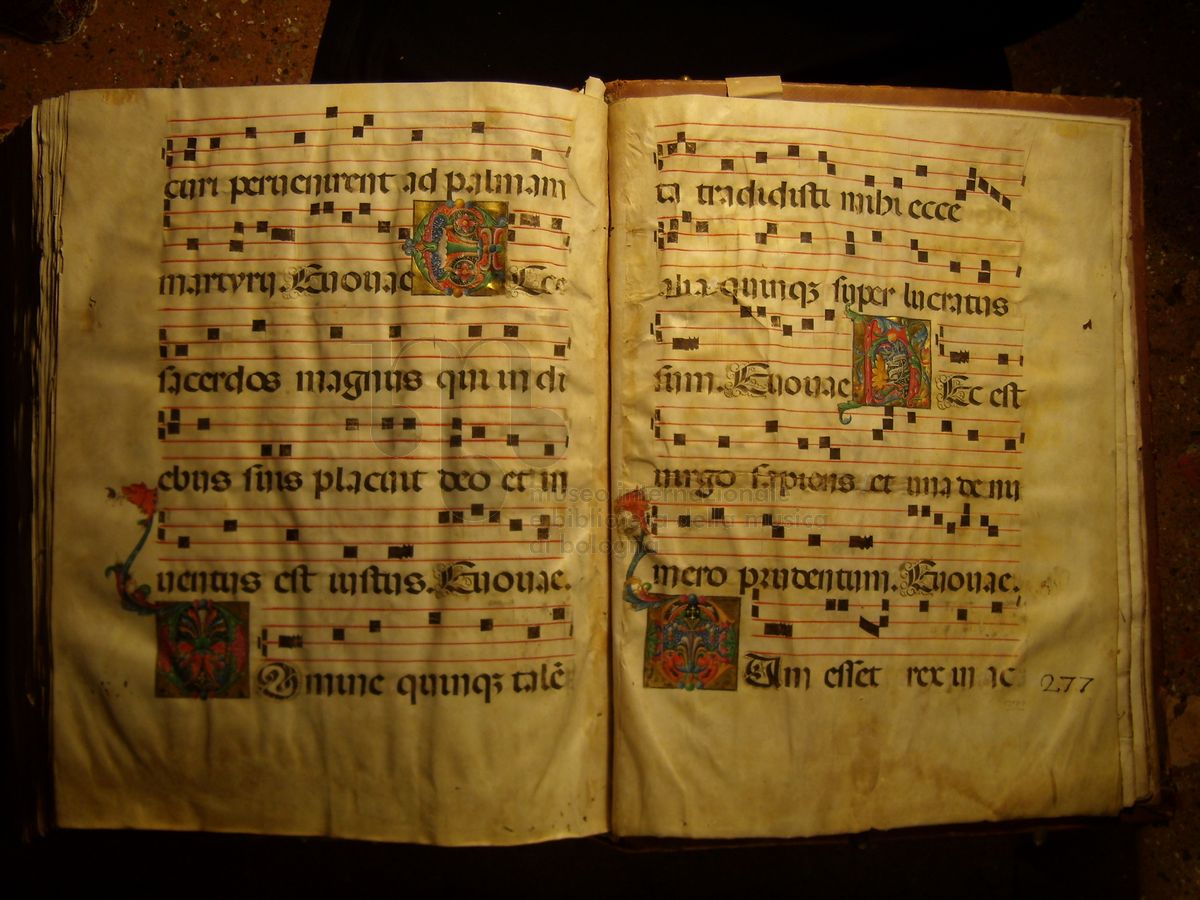 curi peruenirent ad palmam
martyrij. Euouae Ecce
sacerdos magnus qui in di
ebus suis placuit deo et in
uentus est iustus. Euouae.
Domine quinqꝫ talē
ta tradidisti mihi ecce
alia quinqꝫ super lucratus
sum. Euouae Ec est
uirgo sapiens et una de nu
mero prudentum. Euouae.
Dum esset rex in ac
277
museo internazionale
e biblioteca della musica
di bologna